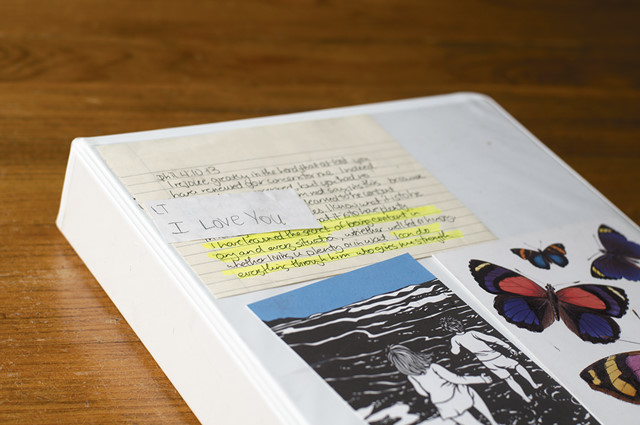 Phil 4:10-13
I rejoice greatly in the Lord that at last you
have renewed your concern for me. Indeed
but you had no
I'm not saying this because
learned to be content
I know what it is to be
what it is to have plenty
LT
I LOVE YOU
I have learned the secret of being content in
any and every situation whether well fed or hungry,
whether living in plenty or in want. I can do
everything through him who gives him strength